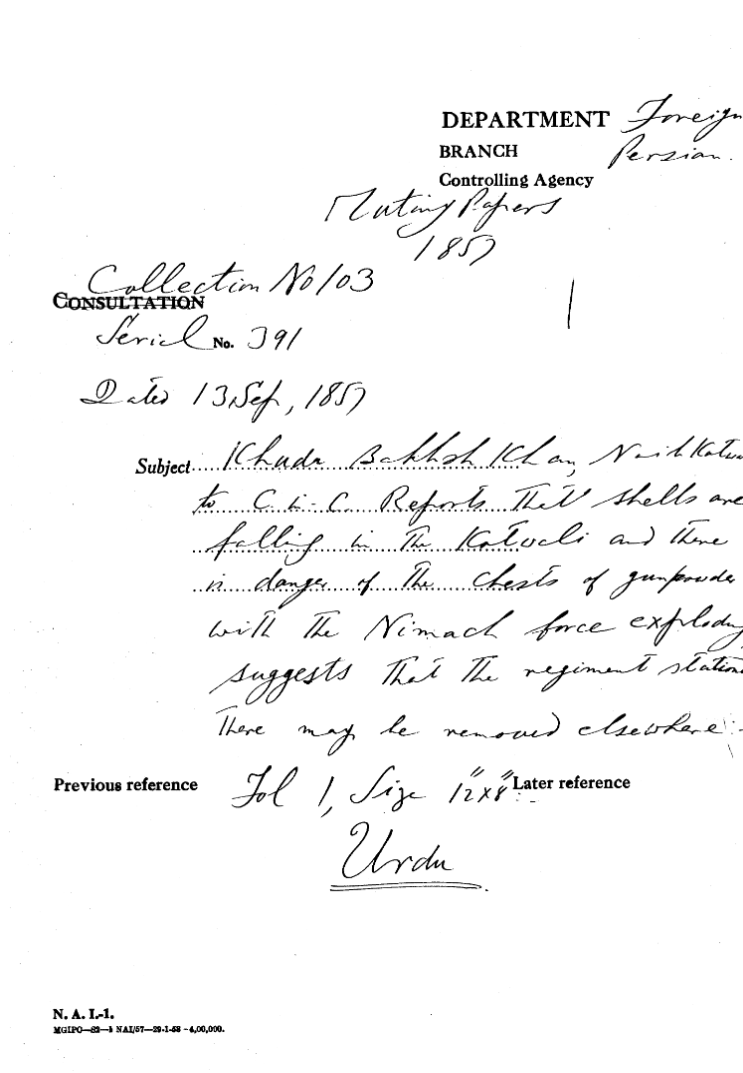 DEPARTMENT Foreign
BRANCH Persian.
Controlling Agency
Mutiny Papers
1857
Collection No 103
CONSULTATION
Serial No. 391
Dated 13 Sep, 1857
Subject Khuda Bakhsh Khan, Naib Kotwa
to C-in-C. Reports that shells are
falling in the Kotwali and there
is danger of the chests of gunpowder
with the Nimach force exploding
suggests that the regiment station
there may be removed elsewhere.
Previous reference Fol 1, Size 12"x8" Later reference
Urdu
N. A. I.-1.
MGIPO—82—1 NAI/57—29-1-58 -4,00,000.